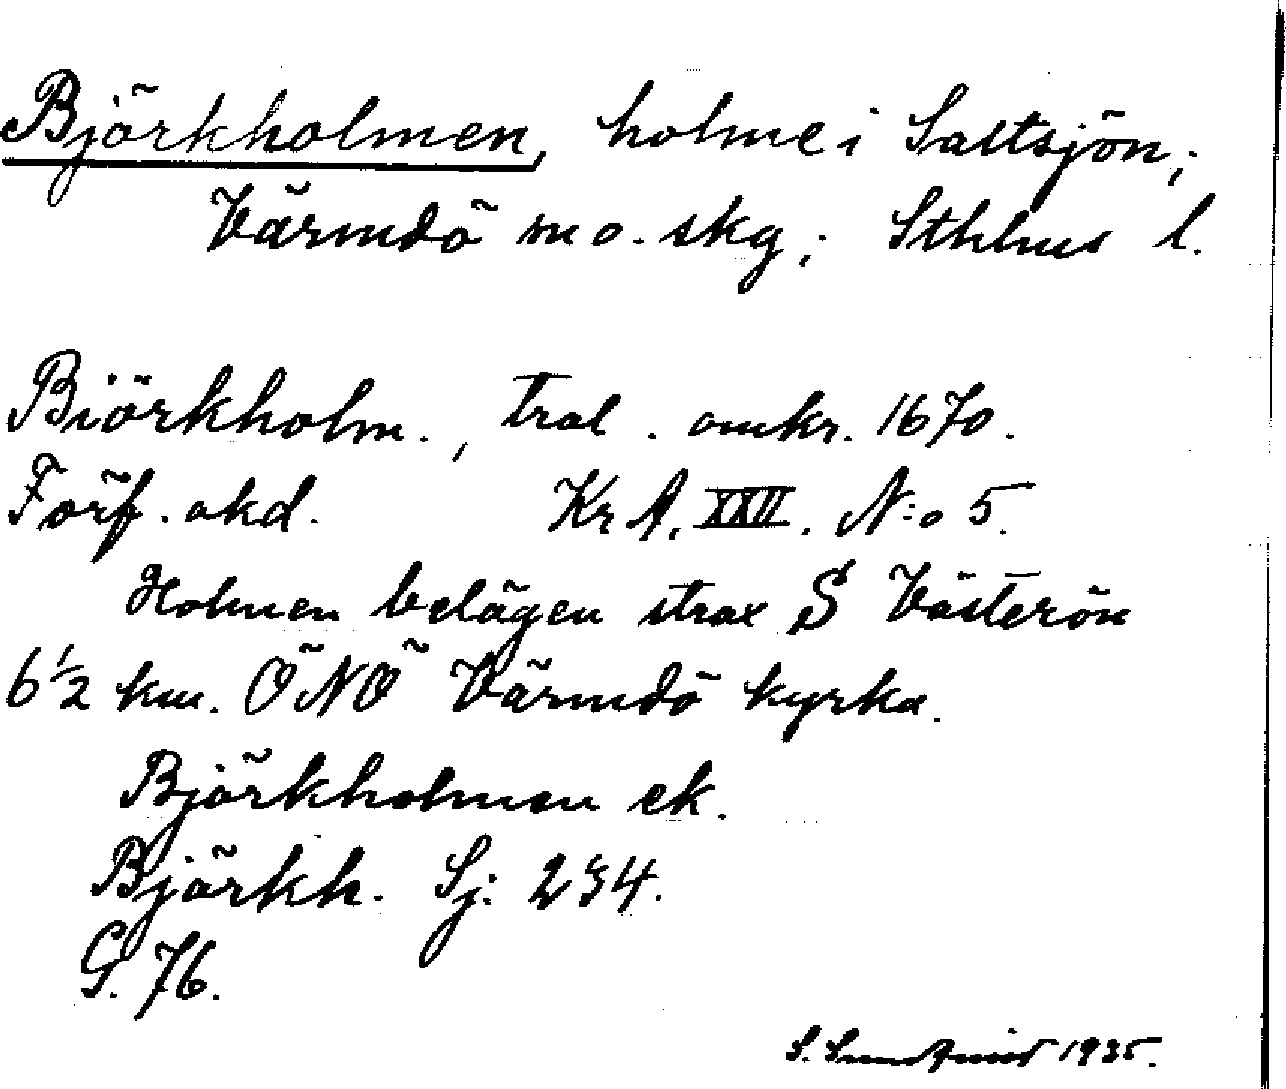 Björkholmen, holme i Saltsjön;
Värmdö sn o. skg; Sthlms l.
Biörkholm., tral. omkr. 1670.
Förf. okd. KrA. XXII. N:o 5.
Holmen belägen strax S Västerön
6 1/2 km. ÖNÖ Värmdö kyrka.
Björkholmen ek.
Björkh. Sj: 234.
G. 76.
S. Sundqvist 1935.